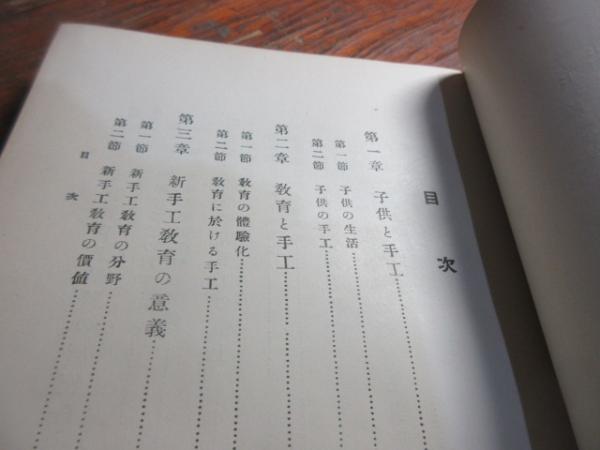 目次
第一章 子供と手工
第一節 子供の生活
第二節 子供の手工
第二章 教育と手工
第一節 教育の體驗化
第二節 教育に於ける手工
第三章 新手工教育の意義
第一節 新手工教育の分野
第二節 新手工教育の價値
目次